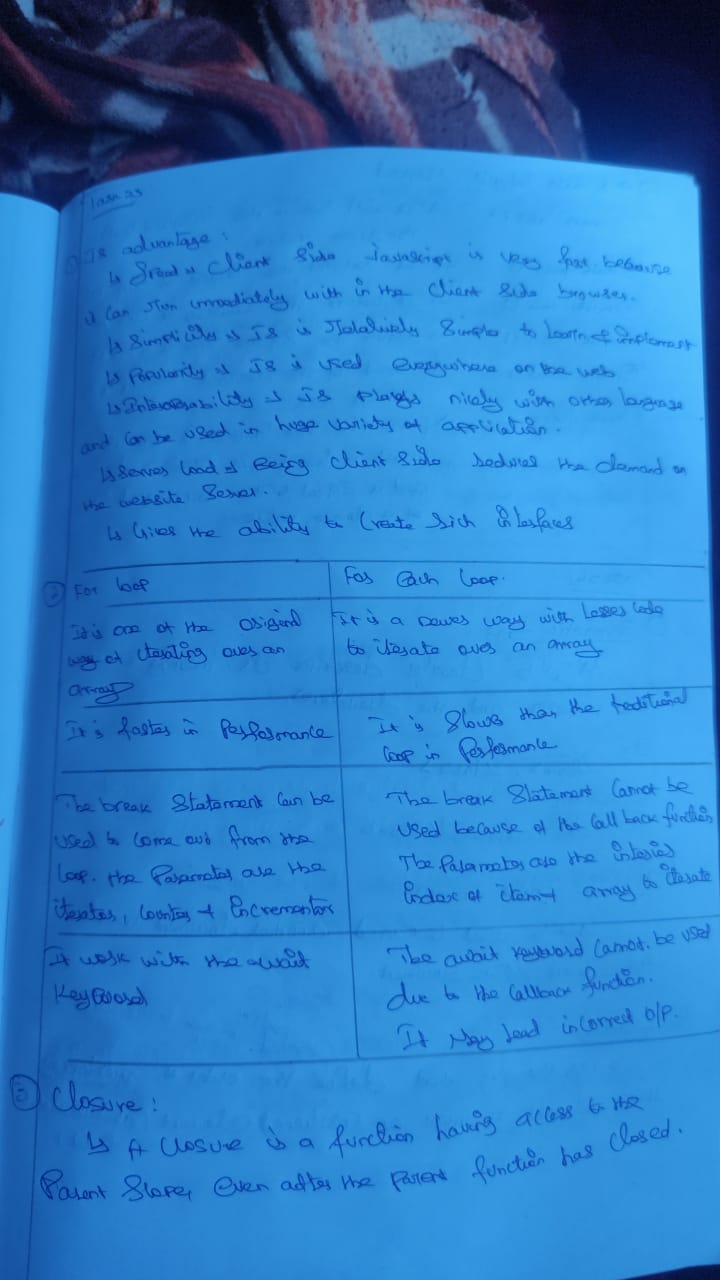 Task 23
① JS advantage :
↳ Speed → Client Side Javascript is very fast because
it Can run immediately with in the Client Side browser.
↳ Simplicity → JS is relatively Simple to Learn & implement
↳ Popularity → JS is used everywhere on the web
↳ Interoperability → JS plays nicely with other language
and Can be used in huge variety of application.
↳ Server load → Being Client Side reduces the demand on
the website Server.
↳ Gives the ability to Create rich interfaces
② For loop
For Each Loop.
It is one of the original
way of iterating over an
array
It is a newer way with Lesser Code
to iterate over an array
It is faster in Performance
It is Slower than the traditional
loop in Performance
The break Statement Can be
used to Come out from the
Loop. the Parameters are the
iterator, Counter & Incrementor
The break Statement Cannot be
used because of the Call back function
The Parameters are the
index of item & array to iterate
It work with the await
Keyword
The await keyword Cannot be used
due to the Callback function.
It May lead incorrect O/P.
③ Closure :
↳ A Closure is a function having access to the
Parent Scope, even after the Parent function has Closed.